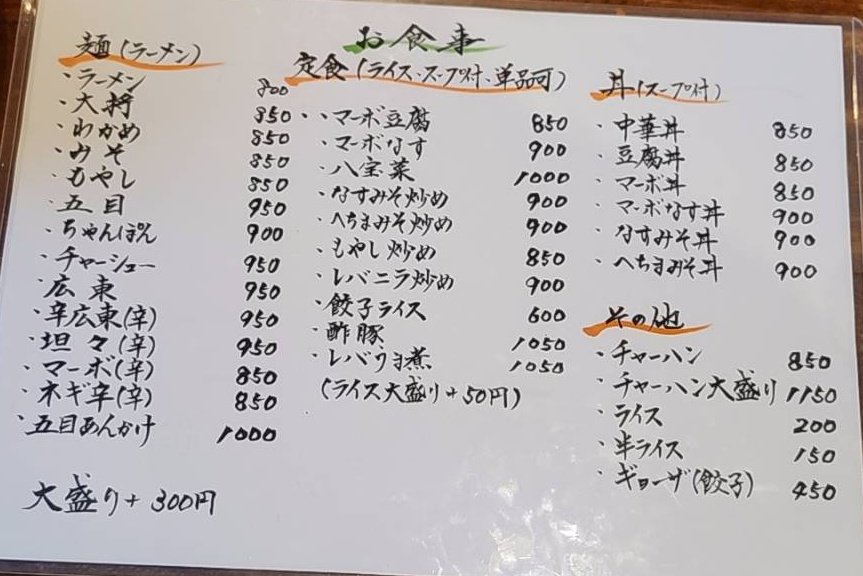 お食事
麺(ラーメン)
・ラーメン 800
・大将 850
・わかめ 850
・みそ 850
・もやし 850
・五目 950
・ちゃんぽん 900
・チャーシュー 950
・広東 950
・辛広東(辛) 950
・坦々(辛) 950
・マーボ(辛) 850
・ネギ辛(辛) 850
・五目あんかけ 1000
大盛り+300円
定食(ライス・スープ付、単品可)
・マーボ豆腐 850
・マーボなす 900
・八宝菜 1000
・なすみそ炒め 900
・へちまみそ炒め 900
・もやし炒め 850
・レバニラ炒め 900
・餃子ライス 600
・酢豚 1050
・レバうま煮 1050
(ライス大盛り+50円)
丼(スープ付)
・中華丼 850
・豆腐丼 850
・マーボ丼 850
・マーボなす丼 900
・なすみそ丼 900
・へちまみそ丼 900
その他
・チャーハン 850
・チャーハン大盛り 1150
・ライス 200
・半ライス 150
・ギョーザ(餃子) 450